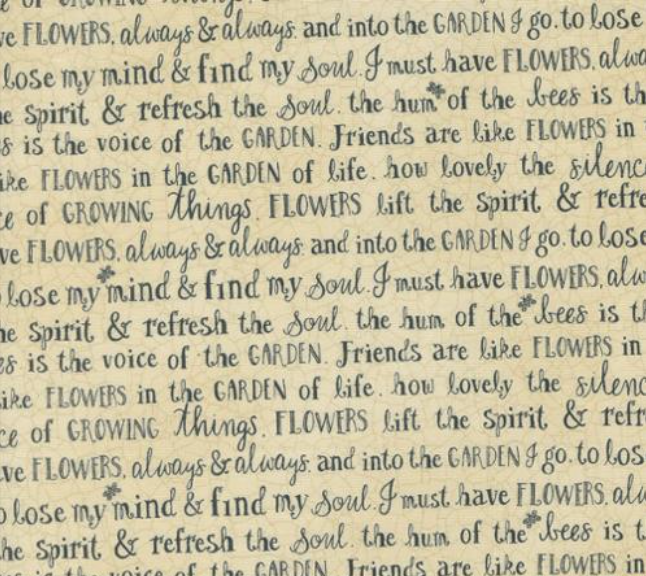 of GROWING things.
ve FLOWERS, always & always. and into the GARDEN I go. to lose
lose my mind & find my soul. I must have FLOWERS, alwa
he spirit & refresh the soul. the hum of the bees is th
s is the voice of the GARDEN. Friends are like FLOWERS in
ike FLOWERS in the GARDEN of life. how lovely the silenc
ce of GROWING things. FLOWERS lift the spirit & refre
ve FLOWERS, always & always. and into the GARDEN I go. to lose
o lose my mind & find my soul. I must have FLOWERS, alw
he spirit & refresh the soul. the hum of the bees is th
es is the voice of the GARDEN. Friends are like FLOWERS in
ike FLOWERS in the GARDEN of life. how lovely the silenc
ce of GROWING things. FLOWERS lift the spirit & refr
ve FLOWERS, always & always. and into the GARDEN I go. to los
o lose my mind & find my soul. I must have FLOWERS, alw
he spirit & refresh the soul. the hum of the bees is t
is the voice of the GARDEN. Friends are like FLOWERS in